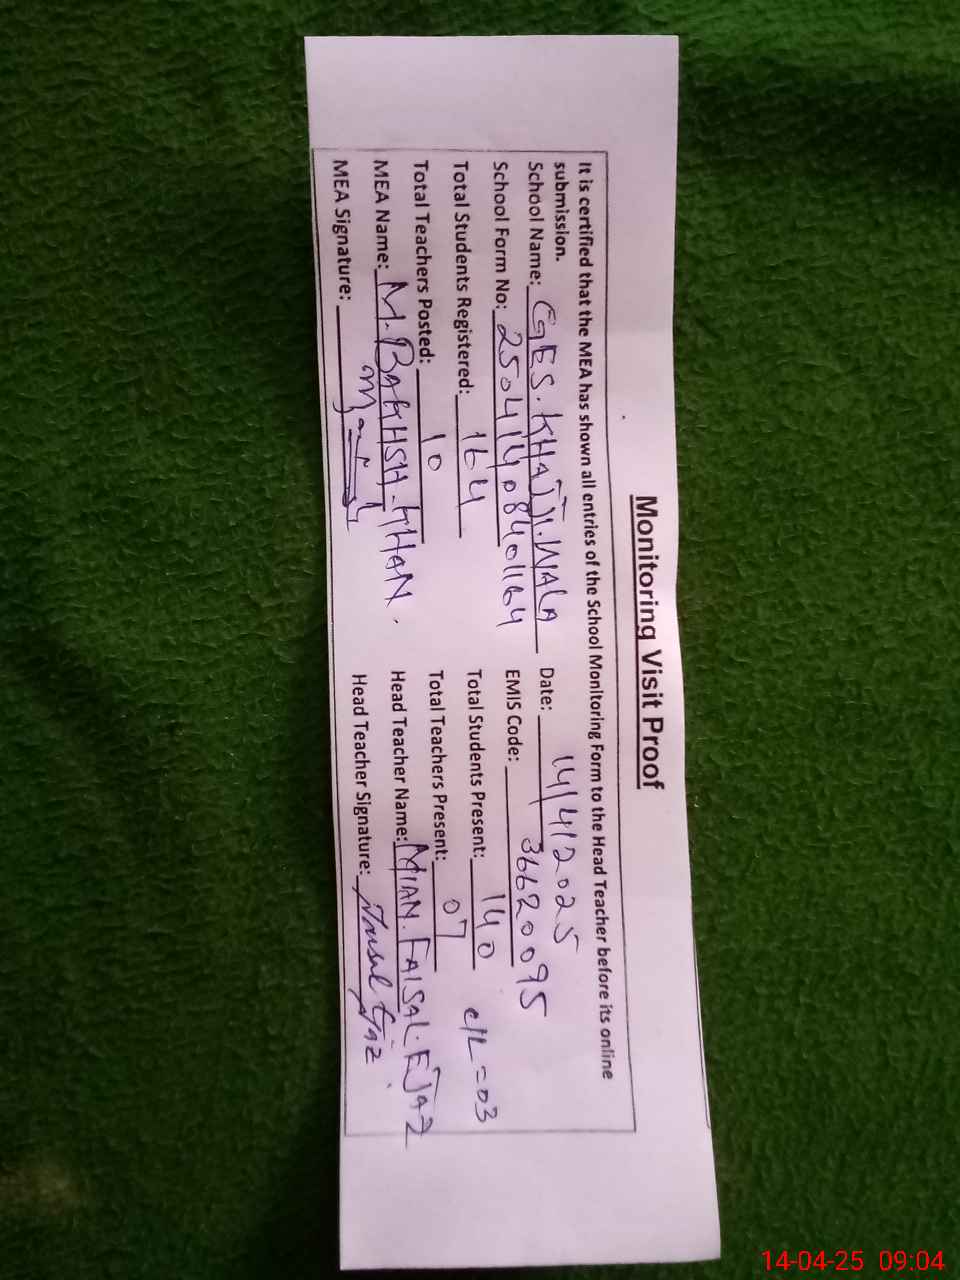 Monitoring Visit Proof
It is certified that the MEA has shown all entries of the School Monitoring Form to the Head Teacher before its online
submission.
School Name: GES. KHAJJI. WALA Date: 14/4/2025
School Form No: 25041408401164 EMIS Code: 36620095
Total Students Registered: 164 Total Students Present: 140 c/L = 03
Total Teachers Posted: 10 Total Teachers Present: 07
MEA Name: M. BAKHSH. KHAN. Head Teacher Name: MIAN. FAISAL. EJAZ
MEA Signature: Head Teacher Signature:
14-04-25 09:04